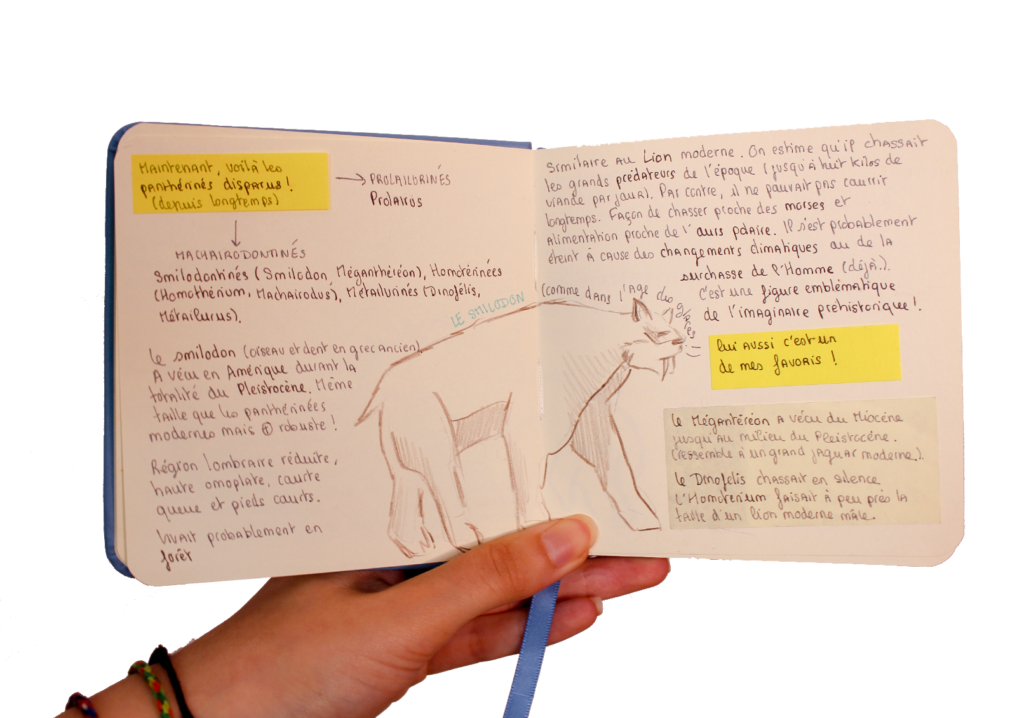 Maintenant, voilà les
panthérinés disparus !
(depuis longtemps)
PROLAILURINÉS
Prolairus
MACHAIRODONTINÉS
Smilodontinés (Smilodon, Méganthéréon), Homotérinées
(Homothérium, Machairodus), Métailurinés (Dinofélis,
Métailurus).
LE SMILODON
(comme dans l'Age des glaces
Le smilodon (ciseau et dent en grec ancien)
A vécu en Amérique durant la
totalité du Pleistocène. Même
taille que les panthérinées
modernes mais + robuste !
Région lombaire réduite,
haute omoplate, courte
queue et pieds courts.
Vivait probablement en
forêt
Similaire au Lion moderne. On estime qu'il chassait
les grands prédateurs de l'époque (jusqu'à huit kilos de
viande par jour). Par contre, il ne pouvait pas courrir
longtemps. Façon de chasser proche des morses et
alimentation proche de l'ours polaire. Il s'est probablement
éteint à cause des changements climatiques ou de la
surchasse de l'Homme (déjà..).
C'est une figure emblématique
de l'imaginaire préhistorique !
lui aussi c'est un
de mes favoris !
Le Mégantéréon a vécu du Miocène
jusqu'au milieu du Pleistocène.
(ressemble à un grand jaguar moderne).
Le Dinofelis chassait en silence
L'Homoterium faisait à peu près la
taille d'un lion moderne mâle.